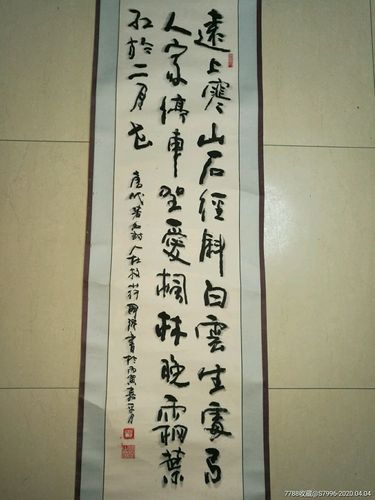 遠上寒山石經斜白雲生處有
人家停車坐愛楓林晚霜葉
紅於二月花
唐代著名詩人杜牧山行書於丙寅嘉平月
7788收藏@S7996-2020.04.04